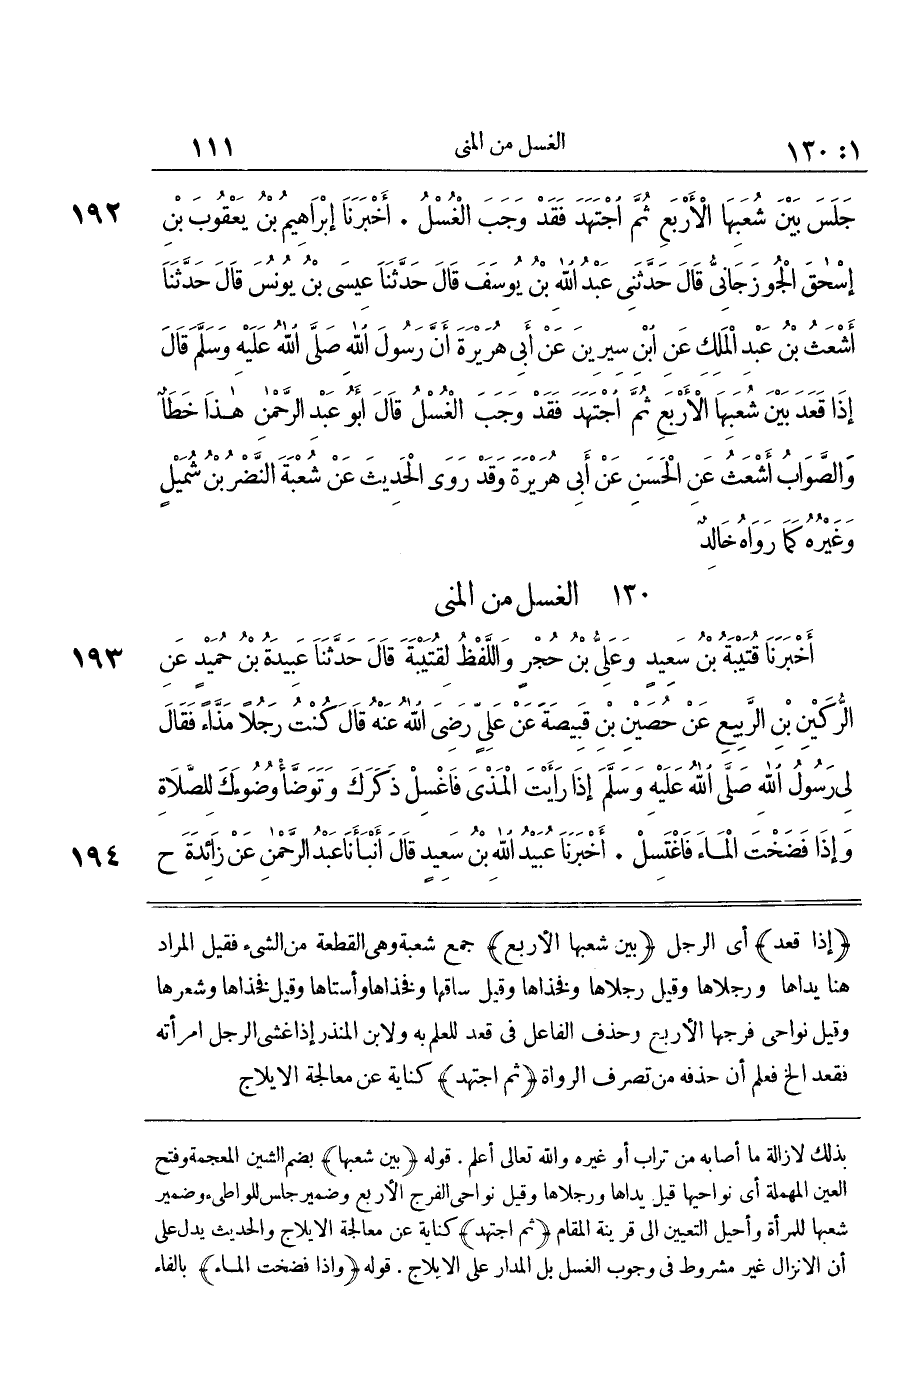 ١: ١٣٠ الغسل من المنى ١١١
جَلَسَ بَيْنَ شُعَبِهَا الْأَرْبَعِ ثُمَّ اجْتَهَدَ فَقَدْ وَجَبَ الْغُسْلُ . أَخْبَرَنَا إِبْرَاهِيمُ بْنُ يَعْقُوبَ بْنِ ١٩٢
إِسْحٰقَ الْجُوزَجَانِيُّ قَالَ حَدَّثَنِي عَبْدُ اللّٰهِ بْنُ يُوسُفَ قَالَ حَدَّثَنَا عِيسَى بْنُ يُونُسَ قَالَ حَدَّثَنَا
أَشْعَثُ بْنُ عَبْدِ الْمَلِكِ عَنِ ابْنِ سِيرِينَ عَنْ أَبِي هُرَيْرَةَ أَنَّ رَسُولَ اللّٰهِ صَلَّى اللّٰهُ عَلَيْهِ وَسَلَّمَ قَالَ
إِذَا قَعَدَ بَيْنَ شُعَبِهَا الْأَرْبَعِ ثُمَّ اجْتَهَدَ فَقَدْ وَجَبَ الْغُسْلُ قَالَ أَبُو عَبْدِ الرَّحْمٰنِ هٰذَا خَطَأٌ
وَالصَّوَابُ أَشْعَثُ عَنِ الْحَسَنِ عَنْ أَبِي هُرَيْرَةَ وَقَدْ رَوَى الْحَدِيثَ عَنْ شُعْبَةَ النَّضْرُ بْنُ شُمَيْلٍ
وَغَيْرُهُ كَمَا رَوَاهُ خَالِدٌ
١٣٠ الغسل من المنى
أَخْبَرَنَا قُتَيْبَةُ بْنُ سَعِيدٍ وَعَلِيُّ بْنُ حُجْرٍ وَاللَّفْظُ لِقُتَيْبَةَ قَالَ حَدَّثَنَا عَبِيدَةُ بْنُ حُمَيْدٍ عَنِ ١٩٣
الرُّكَيْنِ بْنِ الرَّبِيعِ عَنْ حُصَيْنِ بْنِ قَبِيصَةَ عَنْ عَلِيٍّ رَضِيَ اللّٰهُ عَنْهُ قَالَ كُنْتُ رَجُلًا مَذَّاءً فَقَالَ
لِي رَسُولُ اللّٰهِ صَلَّى اللّٰهُ عَلَيْهِ وَسَلَّمَ إِذَا رَأَيْتَ الْمَذْيَ فَاغْسِلْ ذَكَرَكَ وَتَوَضَّأْ وُضُوءَكَ لِلصَّلَاةِ
وَإِذَا فَضَخْتَ الْمَاءَ فَاغْتَسِلْ . أَخْبَرَنَا عُبَيْدُ اللّٰهِ بْنُ سَعِيدٍ قَالَ أَنْبَأَنَا عَبْدُ الرَّحْمٰنِ عَنْ زَائِدَةَ ح ١٩٤
﴿إذا قعد﴾ أى الرجل ﴿بين شعبها الأربع﴾ جمع شعبة وهى القطعة من الشىء فقيل المراد
هنا يداها ورجلاها وقيل رجلاها وفخذاها وقيل ساقها وفخذاها وأستاها وقيل فخذاها وشعرها
وقيل نواحى فرجها الأربع وحذف الفاعل فى قعد للعلم به ولابن المنذر إذا غشى الرجل امرأته
فقعد الخ فعلم أن حذفه من تصرف الرواة ﴿ثم اجتهد﴾ كناية عن معالجة الايلاج
بذلك لازالة ما أصابه من تراب أو غيره والله تعالى أعلم . قوله ﴿بين شعبها﴾ بضم الشين المعجمة وفتح
العين المهملة أى نواحيها قيل يداها ورجلاها وقيل نواحى الفرج الأربع وضمير جلس للواطىء وضمير
شعبها للمرأة وأحيل التعيين الى قرينة المقام ﴿ثم اجتهد﴾ كناية عن معالجة الايلاج والحديث يدل على
أن الانزال غير مشروط فى وجوب الغسل بل المدار على الايلاج . قوله ﴿واذا فضخت المـاء﴾ بالفاء